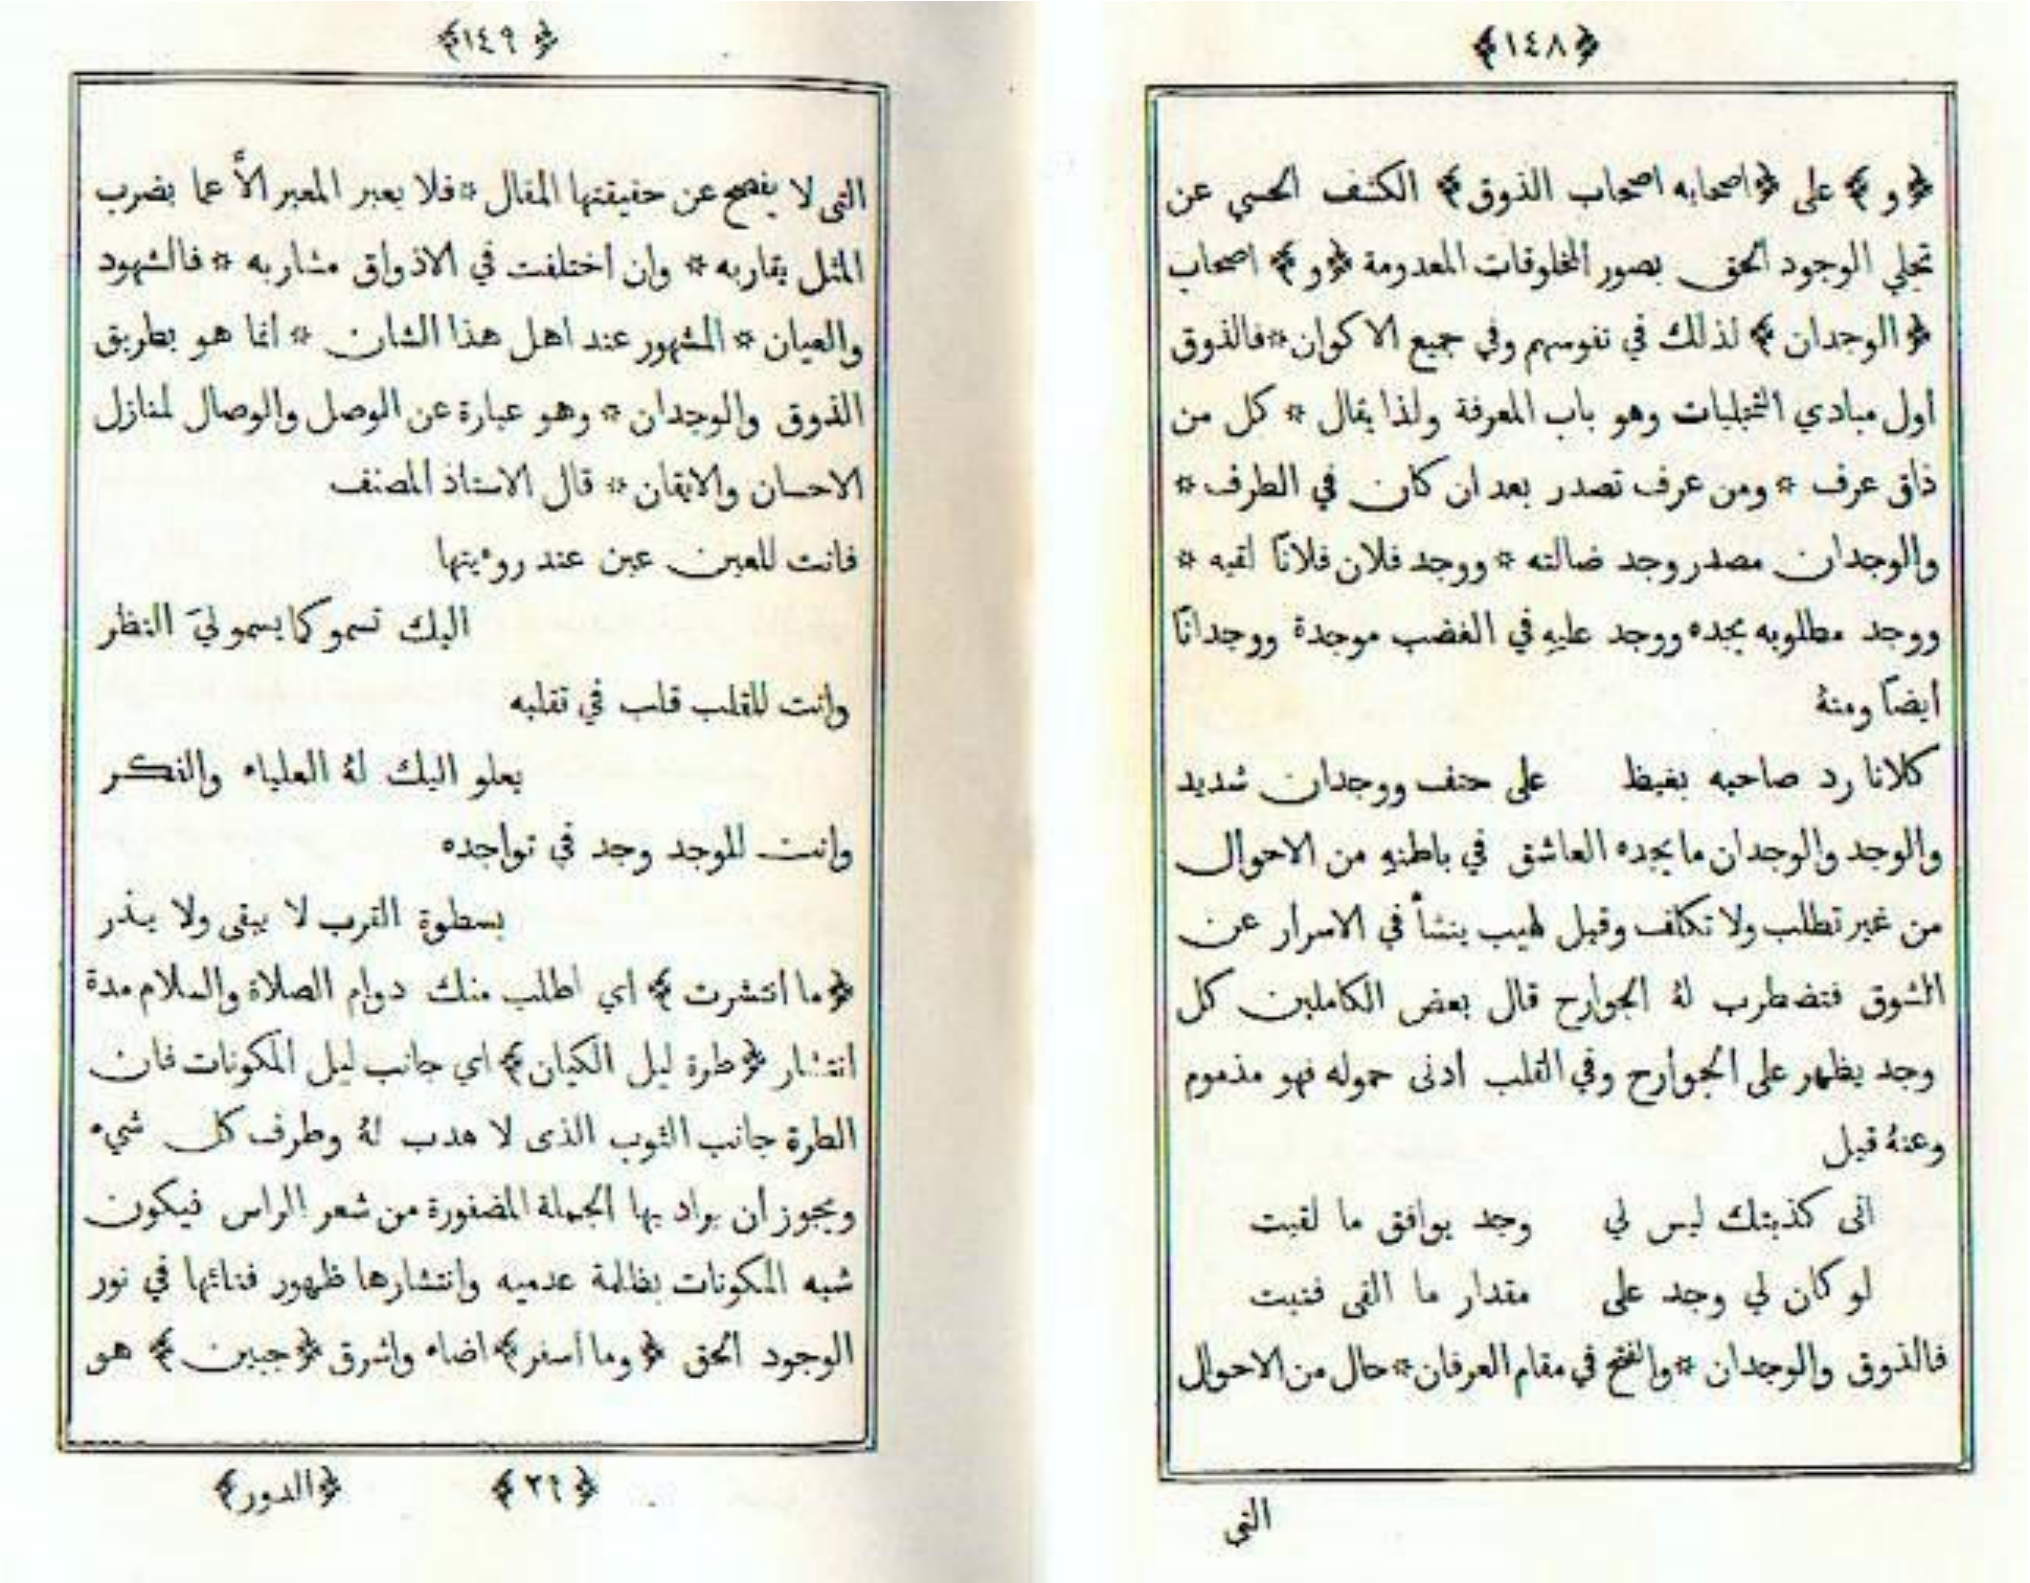 ﴿١٤٨﴾
﴿و﴾ على ﴿اصحابه اصحاب الذوق﴾ الكشف الحسي عن
تجلي الوجود الحق بصور المخلوقات المعدومة ﴿و﴾ اصحاب
﴿الوجدان﴾ لذلك في نفوسهم وفي جميع الاكوان * فالذوق
اول مبادي التجليات وهو باب المعرفة ولذا يقال * كل من
ذاق عرف * ومن عرف تصدر بعد ان كان في الطرف *
والوجدان مصدر وجد ضالته * ووجد فلان فلانًا لقيه *
ووجد مطلوبه يجده ووجد عليهِ في الغضب موجدة ووجدانًا
ايضًا ومنهُ
كلانا رد صاحبه بغيظ على حنف ووجدان شديد
والوجد والوجدان ما يجده العاشق في باطنهِ من الاحوال
من غير تطلب ولا تكلف وقيل لهيب ينشأ في الاسرار عن
الشوق فتضطرب لهُ الجوارح قال بعض الكاملين كل
وجد يظهر على الجوارح وفي القلب ادنى حموله فهو مذموم
وعنهُ قيل
انى كذبتك ليس لي وجد يوافق ما لقيت
لو كان لي وجد على مقدار ما القى فنيت
فالذوق والوجدان * والفتح في مقام العرفان * حال من الاحوال
التي
﴿١٤٩﴾
التى لا يفصح عن حقيقتها المقال * فلا يعبر المعبر الاَّ عما بضرب
المثل يقاربه * وان اختلفت في الاذواق مشاربه * فالشهود
والعيان * المشهور عند اهل هذا الشان * انما هو بطريق
الذوق والوجدان * وهو عبارة عن الوصل والوصال لمنازل
الاحسان والايقان * قال الاستاذ المصنف
فانت للعين عين عند روءيتها
اليك تسمو كما يسمو ليَ النظر
وانت للقلب قلب في تقلبه
يعلو اليك لهُ العلياء والفكر
وانت للوجد وجد في تواجده
بسطوة القرب لا يبقى ولا يذر
﴿ما انتشرت﴾ اي اطلب منك دوام الصلاة والسلام مدة
انتشار ﴿طرة ليل الكيان﴾ اي جانب ليل المكونات فان
الطرة جانب الثوب الذى لا هدب لهُ وطرف كل شيء
ويجوز ان يراد بها الجملة المضفورة من شعر الراس فيكون
شبه المكونات بظلمة عدميه وانتشارها ظهور فنائها في نور
الوجود الحق ﴿وما اسفر﴾ اضاء واشرق ﴿جبين﴾ هو
﴿٢٩﴾ ﴿الدور﴾